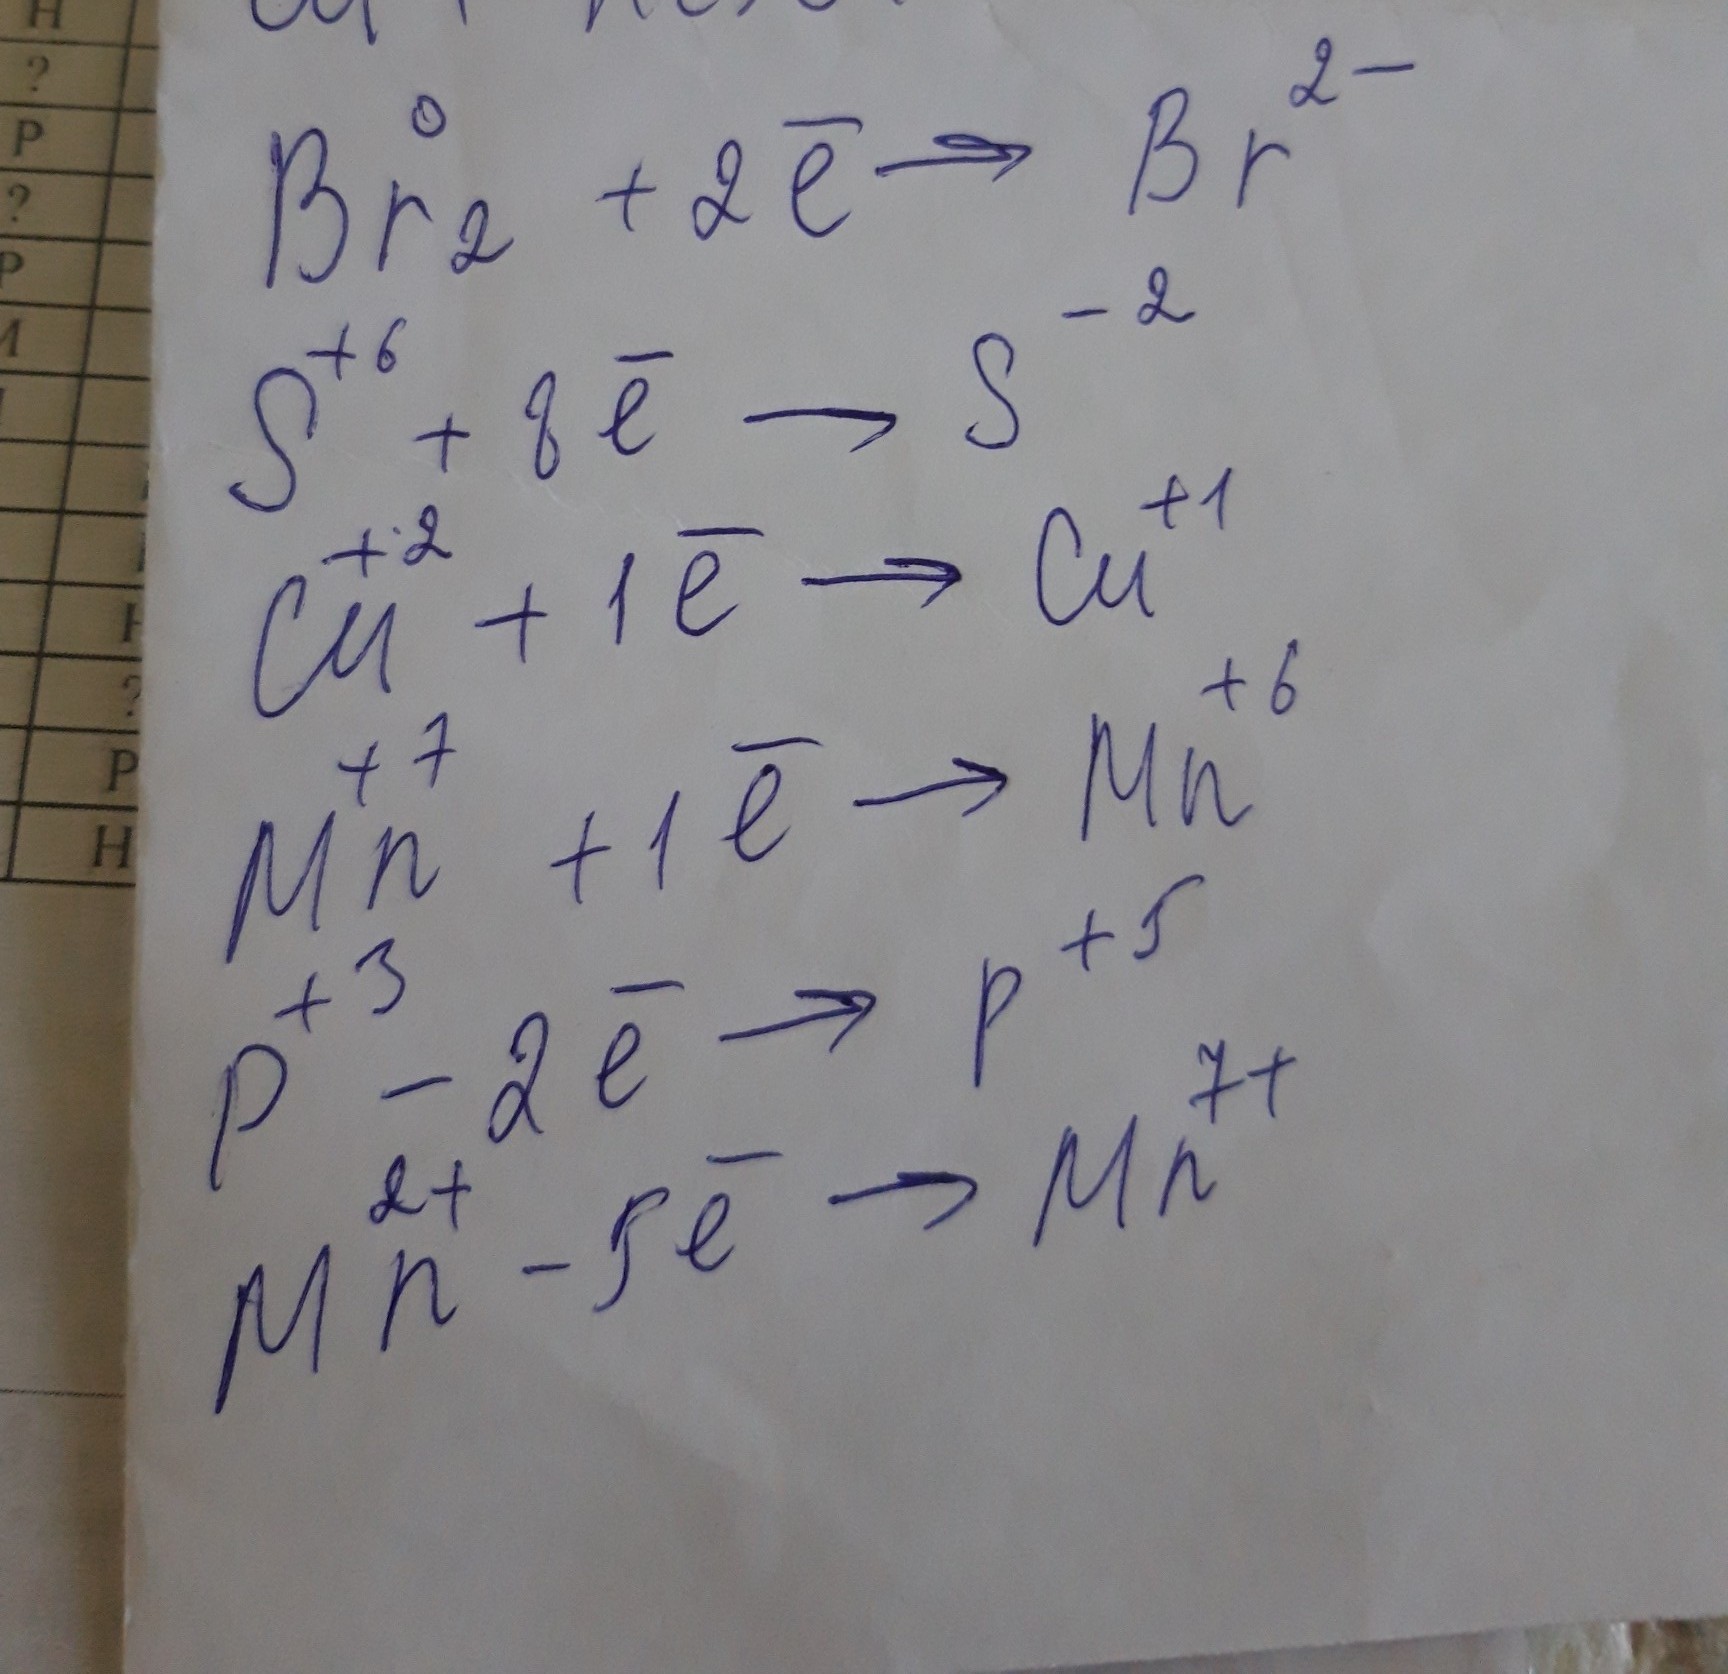 H
?
P
?
P
Br₂⁰ + 2e̅ → Br²⁻
S⁺⁶ + 8e̅ → S⁻²
Cu⁺² + 1e̅ → Cu⁺¹
Mn⁺⁷ + 1e̅ → Mn⁺⁶
P⁺³ - 2e̅ → P⁺⁵
Mn²⁺ - 5e̅ → Mn⁷⁺
?
P
H